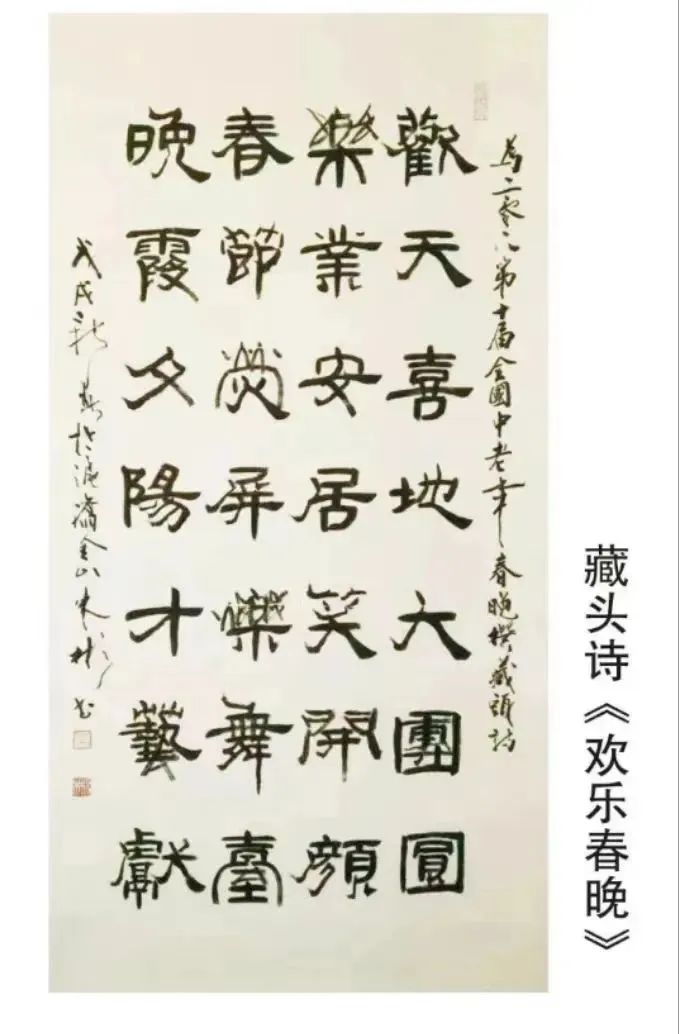 為二零一八第十届全國中老年春晚撰藏頭詩
歡天喜地大團圓
樂業安居笑開顔
春節熒屏爍舞臺
晚霞夕陽才藝獻
戊戌新春於滬金山朱彬书
藏头诗《欢乐春晚》